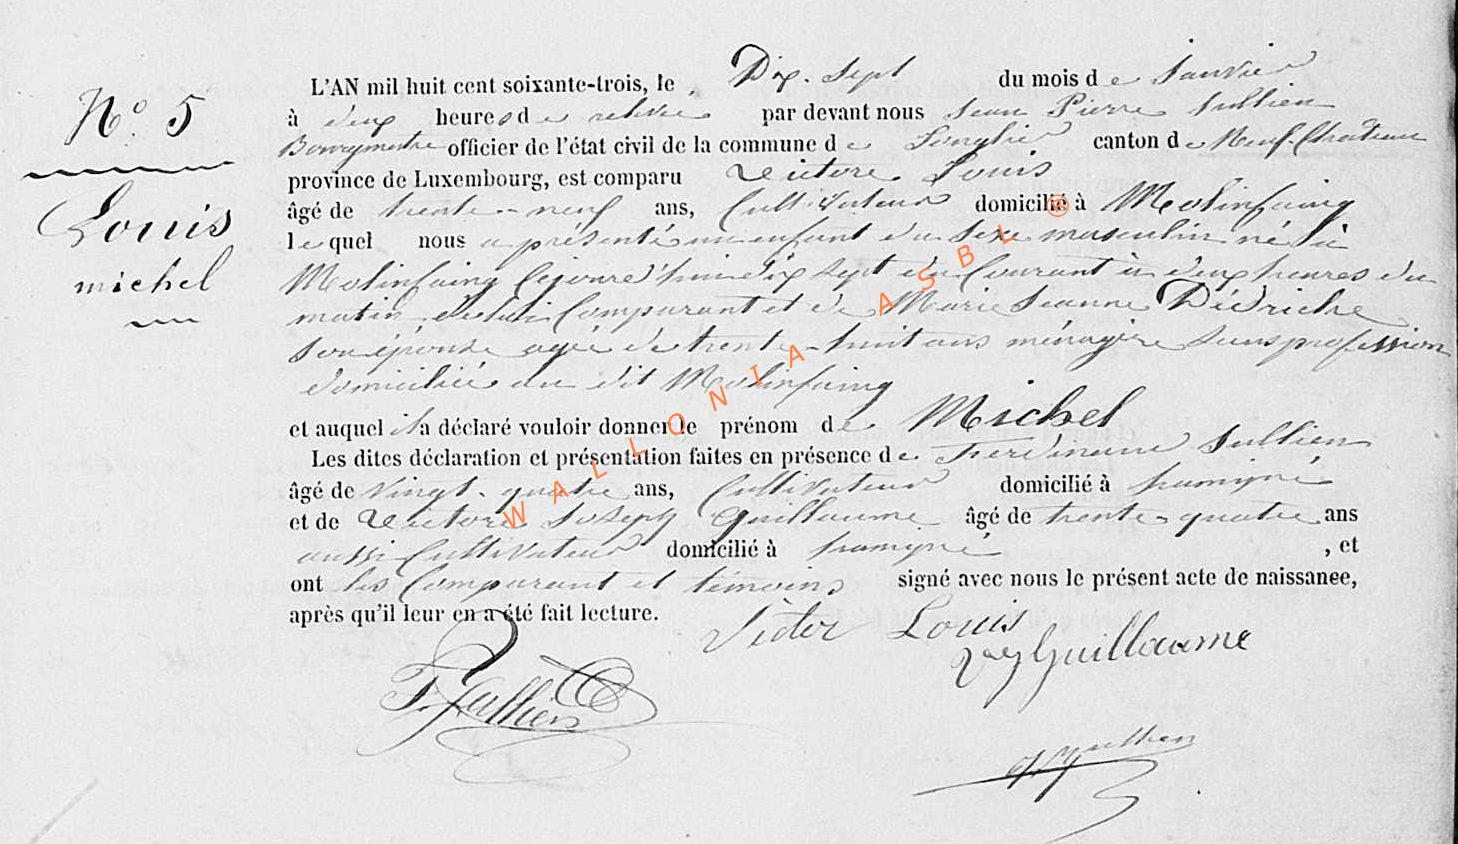 N° 5
Louis
michel
L'AN mil huit cent soixante-trois, le Dix-Sept du mois de Janvier
à deux heures de relevée par devant nous Jean Pierre Jullien
Bourgmestre officier de l'état civil de la commune de Longlier canton de Neufchateau
province de Luxembourg, est comparu Victore Louis
âgé de trente-neuf ans, Cultivateur domicilié à Molinfaing
lequel nous a présenté un enfant du sexe masculin né à
Molinfaing Cejourd'hui dix sept du Courant à deux heures du
matin, de lui Comparant et de Marie Jeanne Diedriche
son épouse agée de trente-huit ans ménagère sans profession
domiciliée au dit Molinfaing
et auquel il a déclaré vouloir donner le prénom de Michel
Les dites déclaration et présentation faites en présence de Ferdinand Jullien
âgé de Vingt-quatre ans, Cultivateur domicilié à
et de Victore Joseph Guillaume âgé de trente-quatre ans
aussi Cultivateur domicilié à , et
ont les Comparant et témoins signé avec nous le présent acte de naissance,
après qu'il leur en a été fait lecture.
Victor Louis
Guillaume
F. Jullien
Jullien
WALLONIA ASBL ®